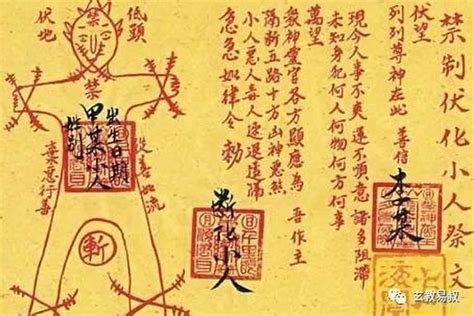 禁制伏化小人祭文
伏望
列列尊神在此 善信 李某
現今人事不爽運不順意諸多阻滯
未知身犯何人何物何方何事
萬望
眾神靈官各方顯應為 吾作主
隔斷五路十方凶神惡煞
小人惡人毒人速退遠隔
急急如律令敕
斷化小人
低頭
伏地
禁
禁
出生日期
甲某小人
性別
從善如流
棄惡行善
斬
玄教易叔